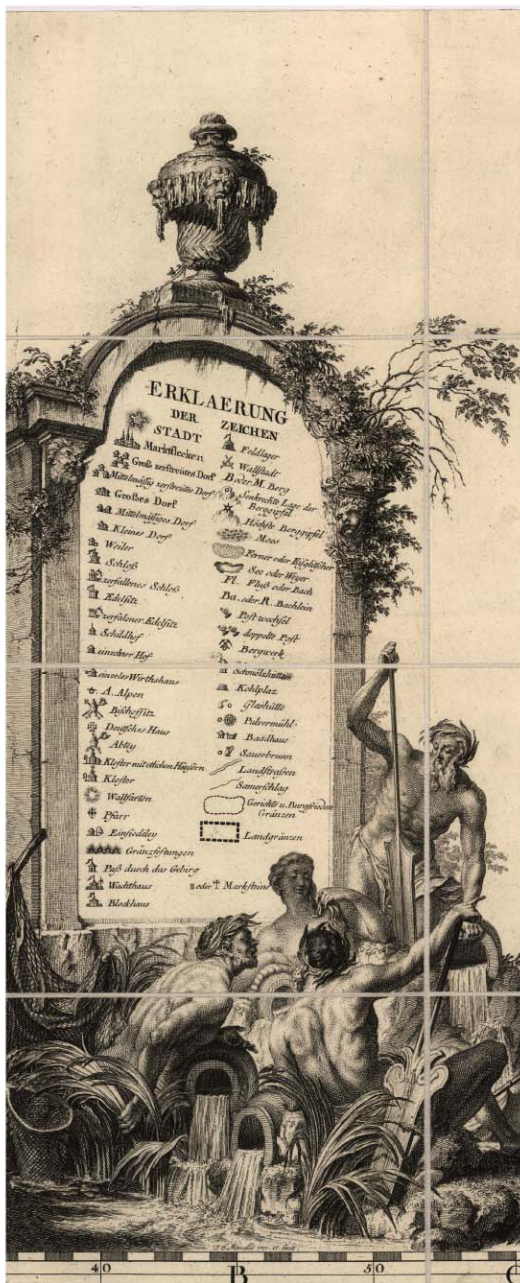 ERKLAERUNG
DER ZEICHEN
STADT
Marktflecken
Groß zerstreütes Dorf
Mittelmäßig zerstreütes Dorf
Großes Dorf
Mittelmäßiges Dorf
Kleines Dorf
Weiler
Schloß
zerfallenes Schloß
Ædelsitz
zerfalener Edelsitz
Schildhof
einzelner Hof
einzeles Wirthshaus
A. Alpen
Bischofsitz
Deutsches Haus
Abtey
Kloster mit etlichen Häusern
Kloster
Wallfarten
Pfarr
Einsiedley
Gränzfestungen
Paß durch das Gebirg
Wachthaus
Blockhaus
Feldlager
Wallstadt
B oder M. Berg
Senkrechte Lage der
Berggipfel
Höchste Berggipfel
Moos
Ferner oder
See oder Weyer
Fl. Fluß oder Bach
Ba. oder R. Bachlein
Post wechsel
doppelte Post
Bergwerk
Schmelzhütten
Kohlplaz
Glashütte
Pulvermühl
Baadhaus
Sauerbrunn
Landstraßen
Samerschlag
Gerichts u. Burgfrieden
Gränzen
Landgränzen
oder Marksteine
40 50
B C